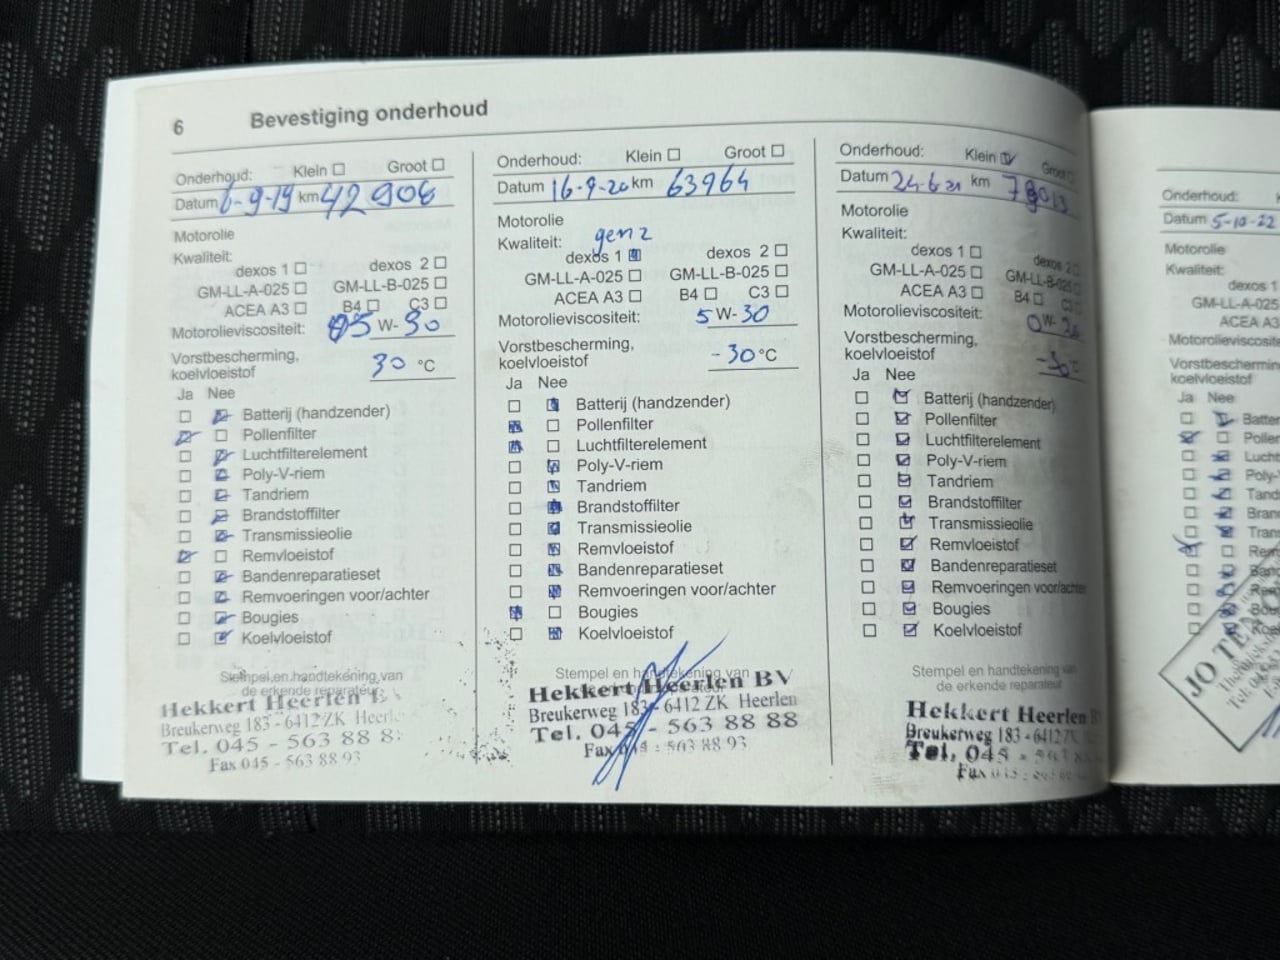 6 Bevestiging onderhoud
Onderhoud: Klein ☐ Groot ☐
Datum 6-9-19 km 42906
Motorolie
Kwaliteit:
dexos 1 ☐ dexos 2 ☐
GM-LL-A-025 ☐ GM-LL-B-025 ☐
ACEA A3 ☐ B4 ☐ C3 ☐
Motorolieviscositeit: 05 W-30
Vorstbescherming,
koelvloeistof 30 °C
Ja Nee
☐ ☑ Batterij (handzender)
☑ ☐ Pollenfilter
☐ ☑ Luchtfilterelement
☐ ☑ Poly-V-riem
☐ ☑ Tandriem
☐ ☑ Brandstoffilter
☐ ☑ Transmissieolie
☑ ☐ Remvloeistof
☐ ☑ Bandenreparatieset
☐ ☑ Remvoeringen voor/achter
☐ ☑ Bougies
☐ ☑ Koelvloeistof
Stempel en handtekening van
de erkende reparateur
Hekkert Heerlen B
Breukerweg 183 - 6412 ZK Heerl
Tel. 045 - 563 88 8
Fax 045 - 563 88 93
Onderhoud: Klein ☐ Groot ☐
Datum 16-9-20 km 63964
Motorolie
Kwaliteit: gen 2
dexos 1 ☑ dexos 2 ☐
GM-LL-A-025 ☐ GM-LL-B-025 ☐
ACEA A3 ☐ B4 ☐ C3 ☐
Motorolieviscositeit: 5 W-30
Vorstbescherming,
koelvloeistof -30 °C
Ja Nee
☐ ☑ Batterij (handzender)
☑ ☐ Pollenfilter
☑ ☐ Luchtfilterelement
☐ ☑ Poly-V-riem
☐ ☑ Tandriem
☐ ☑ Brandstoffilter
☐ ☑ Transmissieolie
☐ ☑ Remvloeistof
☐ ☑ Bandenreparatieset
☐ ☑ Remvoeringen voor/achter
☑ ☐ Bougies
☐ ☑ Koelvloeistof
Stempel en handtekening van
Hekkert Heerlen BV
Breukerweg 183 - 6412 ZK Heerlen
Tel. 045 - 563 88 88
Fax 045 - 563 88 93
Onderhoud: Klein ☑ Groot ☐
Datum 24-6-21 km
Motorolie
Kwaliteit:
dexos 1 ☐ dexos 2 ☐
GM-LL-A-025 ☐ GM-LL-B-025 ☐
ACEA A3 ☐ B4 ☐ C3 ☐
Motorolieviscositeit: 0 W-
Vorstbescherming,
koelvloeistof -30 °C
Ja Nee
☐ ☑ Batterij (handzender)
☐ ☑ Pollenfilter
☐ ☑ Luchtfilterelement
☐ ☑ Poly-V-riem
☐ ☑ Tandriem
☐ ☑ Brandstoffilter
☐ ☑ Transmissieolie
☐ ☑ Remvloeistof
☐ ☑ Bandenreparatieset
☐ ☑ Remvoeringen voor/achter
☐ ☑ Bougies
☐ ☑ Koelvloeistof
Stempel en handtekening van
de erkende reparateur
Hekkert Heerlen B
Breukerweg 183 - 6412 Z
Tel. 045 - 563
Fax 045
Onderhoud:
Datum 5-10-22
Motorolie
Kwaliteit:
dexos 1
GM-LL-A-025
ACEA A3
Motorolieviscosite
Vorstbescherming
koelvloeistof
Ja Nee
☐ ☑ Batte
☑ ☐ Polle
☐ ☑ Lucht
☐ ☑ Poly-
☐ ☑ Tand
☐ ☑ Bran
☐ ☑ Tran
☑ ☐ Rem
☐ ☑ Band
☐ ☑ Rem
☐ ☑ Bou
☐ ☑ Koe
JO TE